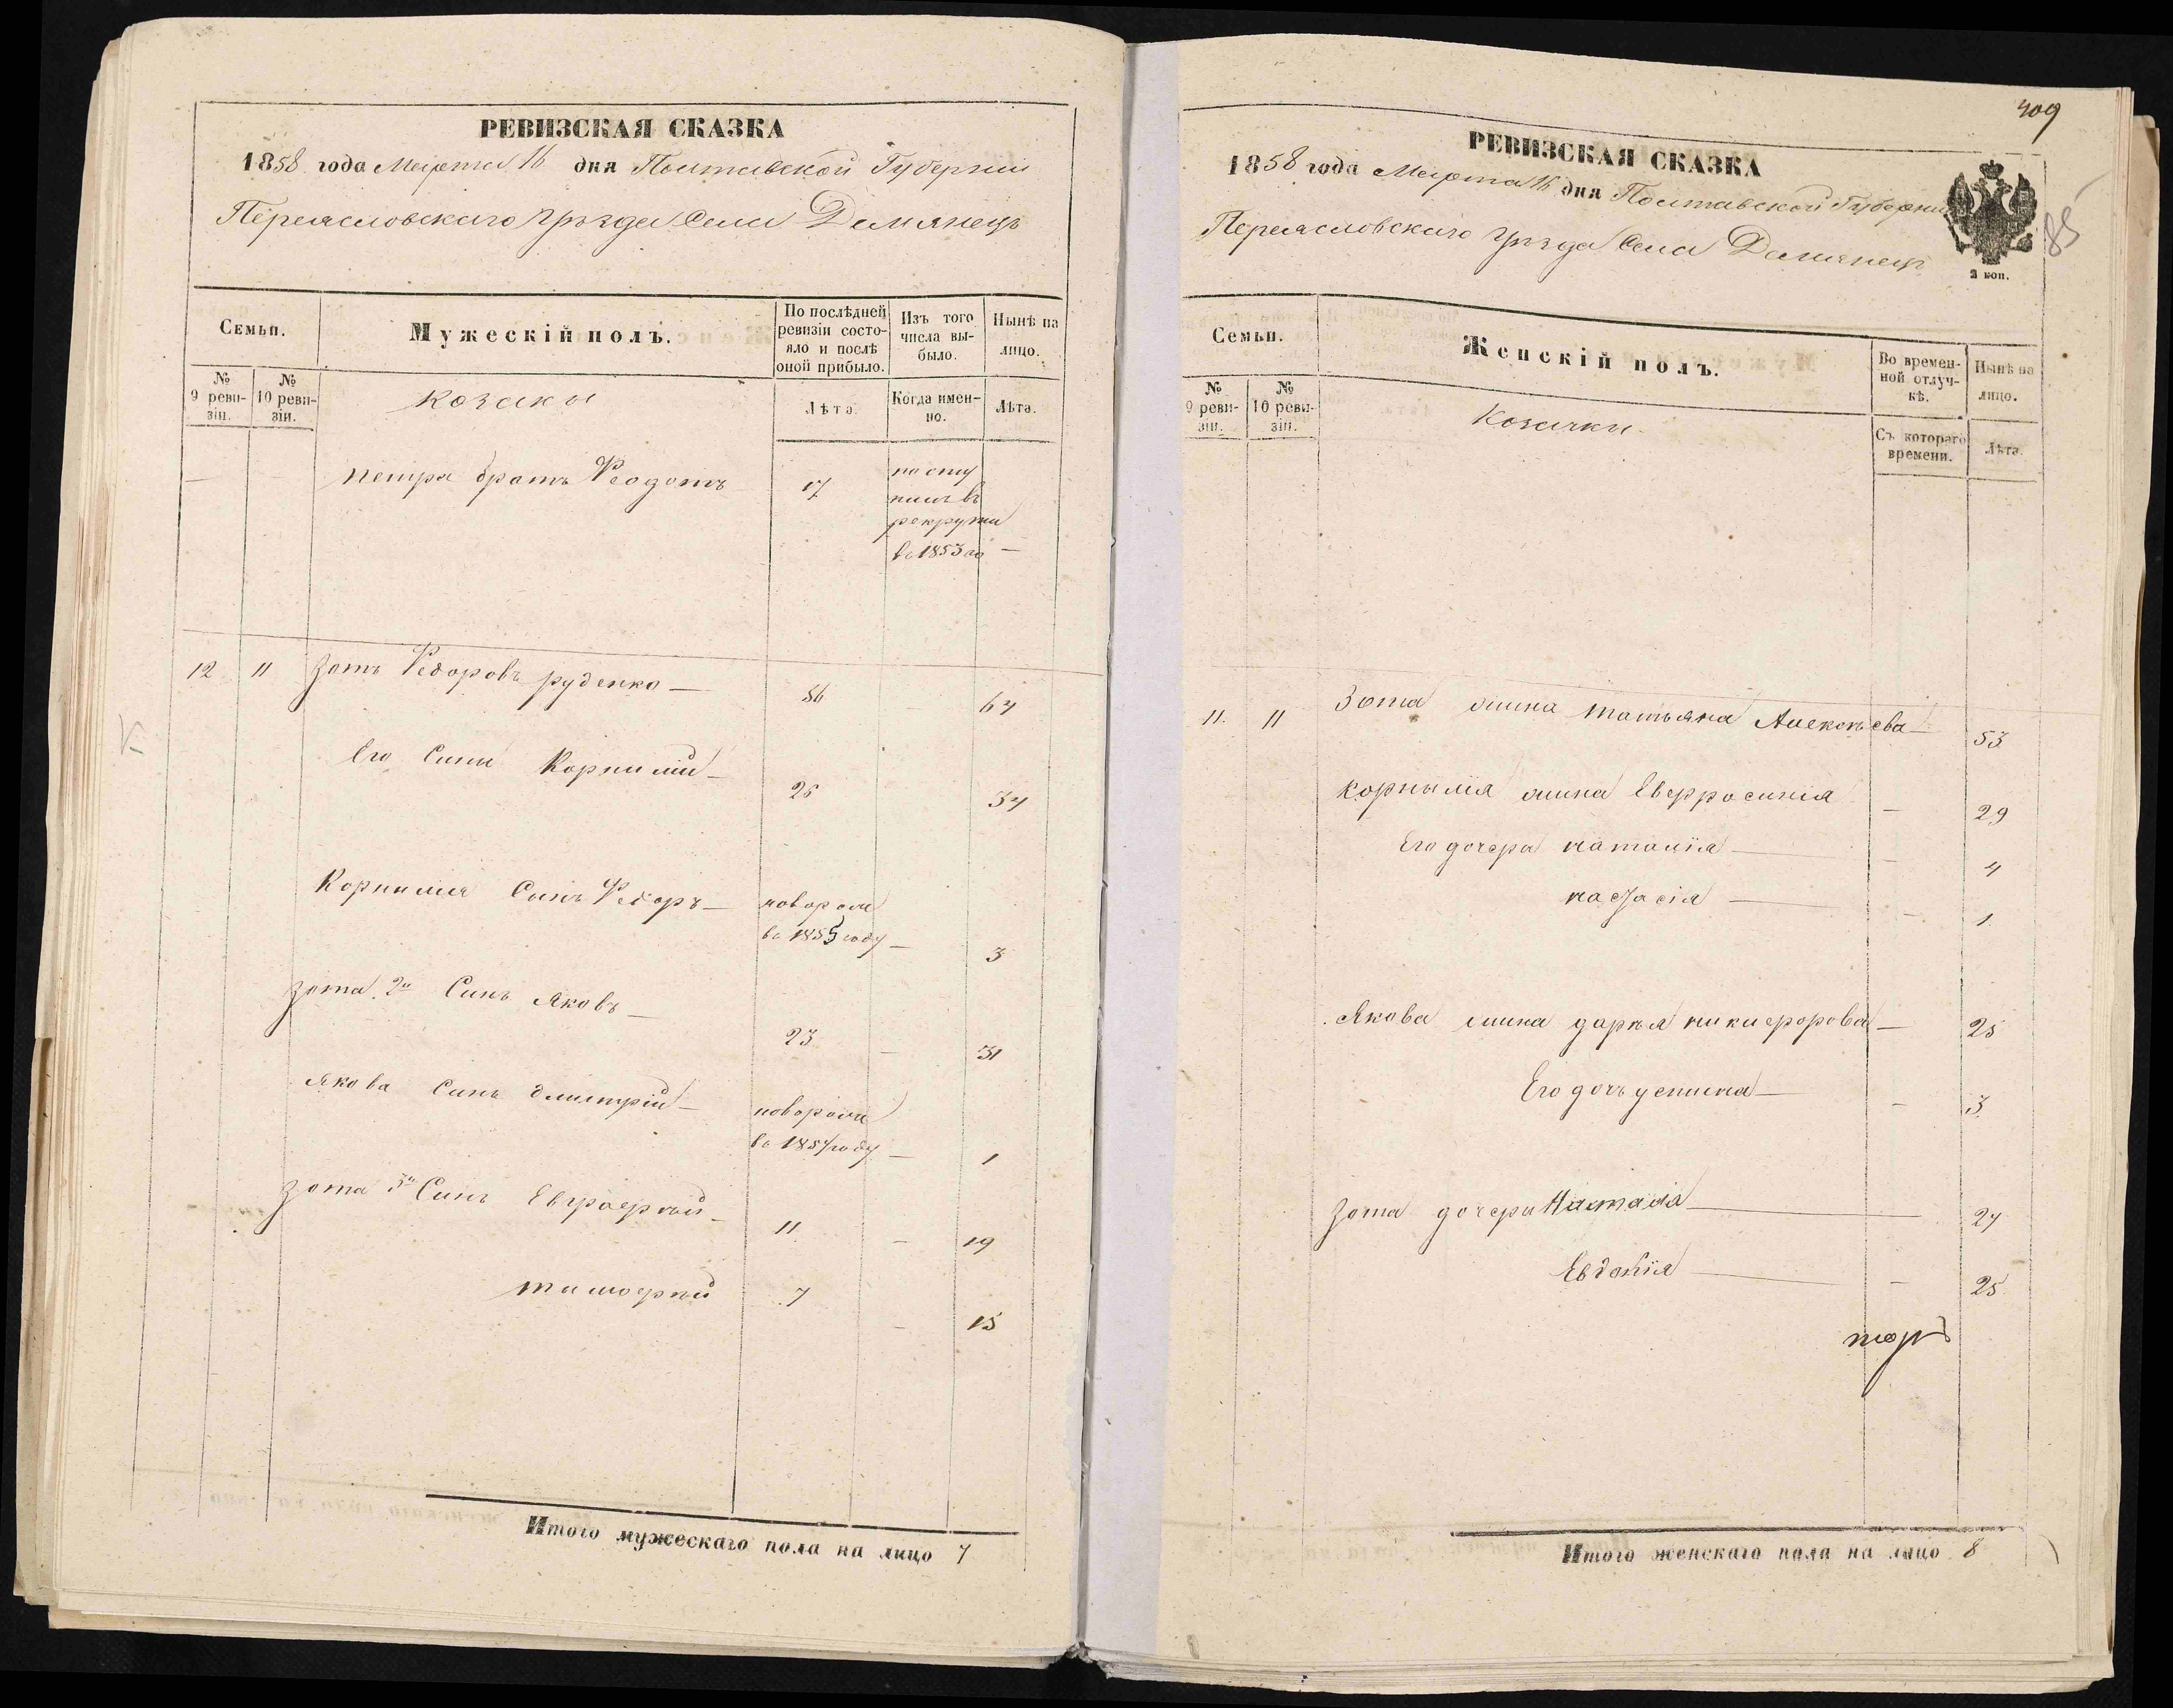 РЕВИЗСКАЯ СКАЗКА
1858 года Марта 16 дня Полтавской Губернии
Переясловского Уѣзда Села Демянецъ
Семьи.
Мужескій полъ.
По послѣдней ревизіи состояло и послѣ оной прибыло.
Изъ того числа выбыло.
Нынѣ на лицо.
№ 9 ревизіи.
№ 10 ревизіи.
Козаки
Лѣта.
Когда именно.
Лѣта.
Петра братъ Феодотъ 17
посту
пилъ въ
рекруты
в 1853 го —
12 11 Зотъ Федоровъ руденко — 56 64
Его Сыны Корнилій — 26 34
Корнилія Сынъ Федоръ — новорож
во 1855 году — 3
Зота 2й Синъ Яковъ — 23 — 31
Якова Синъ дмитрій — новорож
во 1857 году — 1
Зота 3й Синъ Евграфий — 11 — 19
тимофий 7 — 15
Итого мужескаго пола на лицо 7
409
85
РЕВИЗСКАЯ СКАЗКА
1858 года Марта 16 дня Полтавской Губернии
Переясловского Уѣзда Села Демянецъ
2 коп.
Семьи.
Женскій полъ.
Во временной отлучкѣ.
Нынѣ на лицо.
№ 9 ревизіи.
№ 10 ревизіи.
Козачки
Съ котораго времени.
Лѣта.
11. 11 Зота жина татьяна Алексѣева — 53
корнилія жина Еверросинія — 29
Его дочера наталія — — 4
настасія — — 1
Якова жина дарья никифорова — 25
Его дочь устина — — 3
Зота дочери Наталія — 27
Евдокія — — 25
Итого женскаго пола на лицо 8